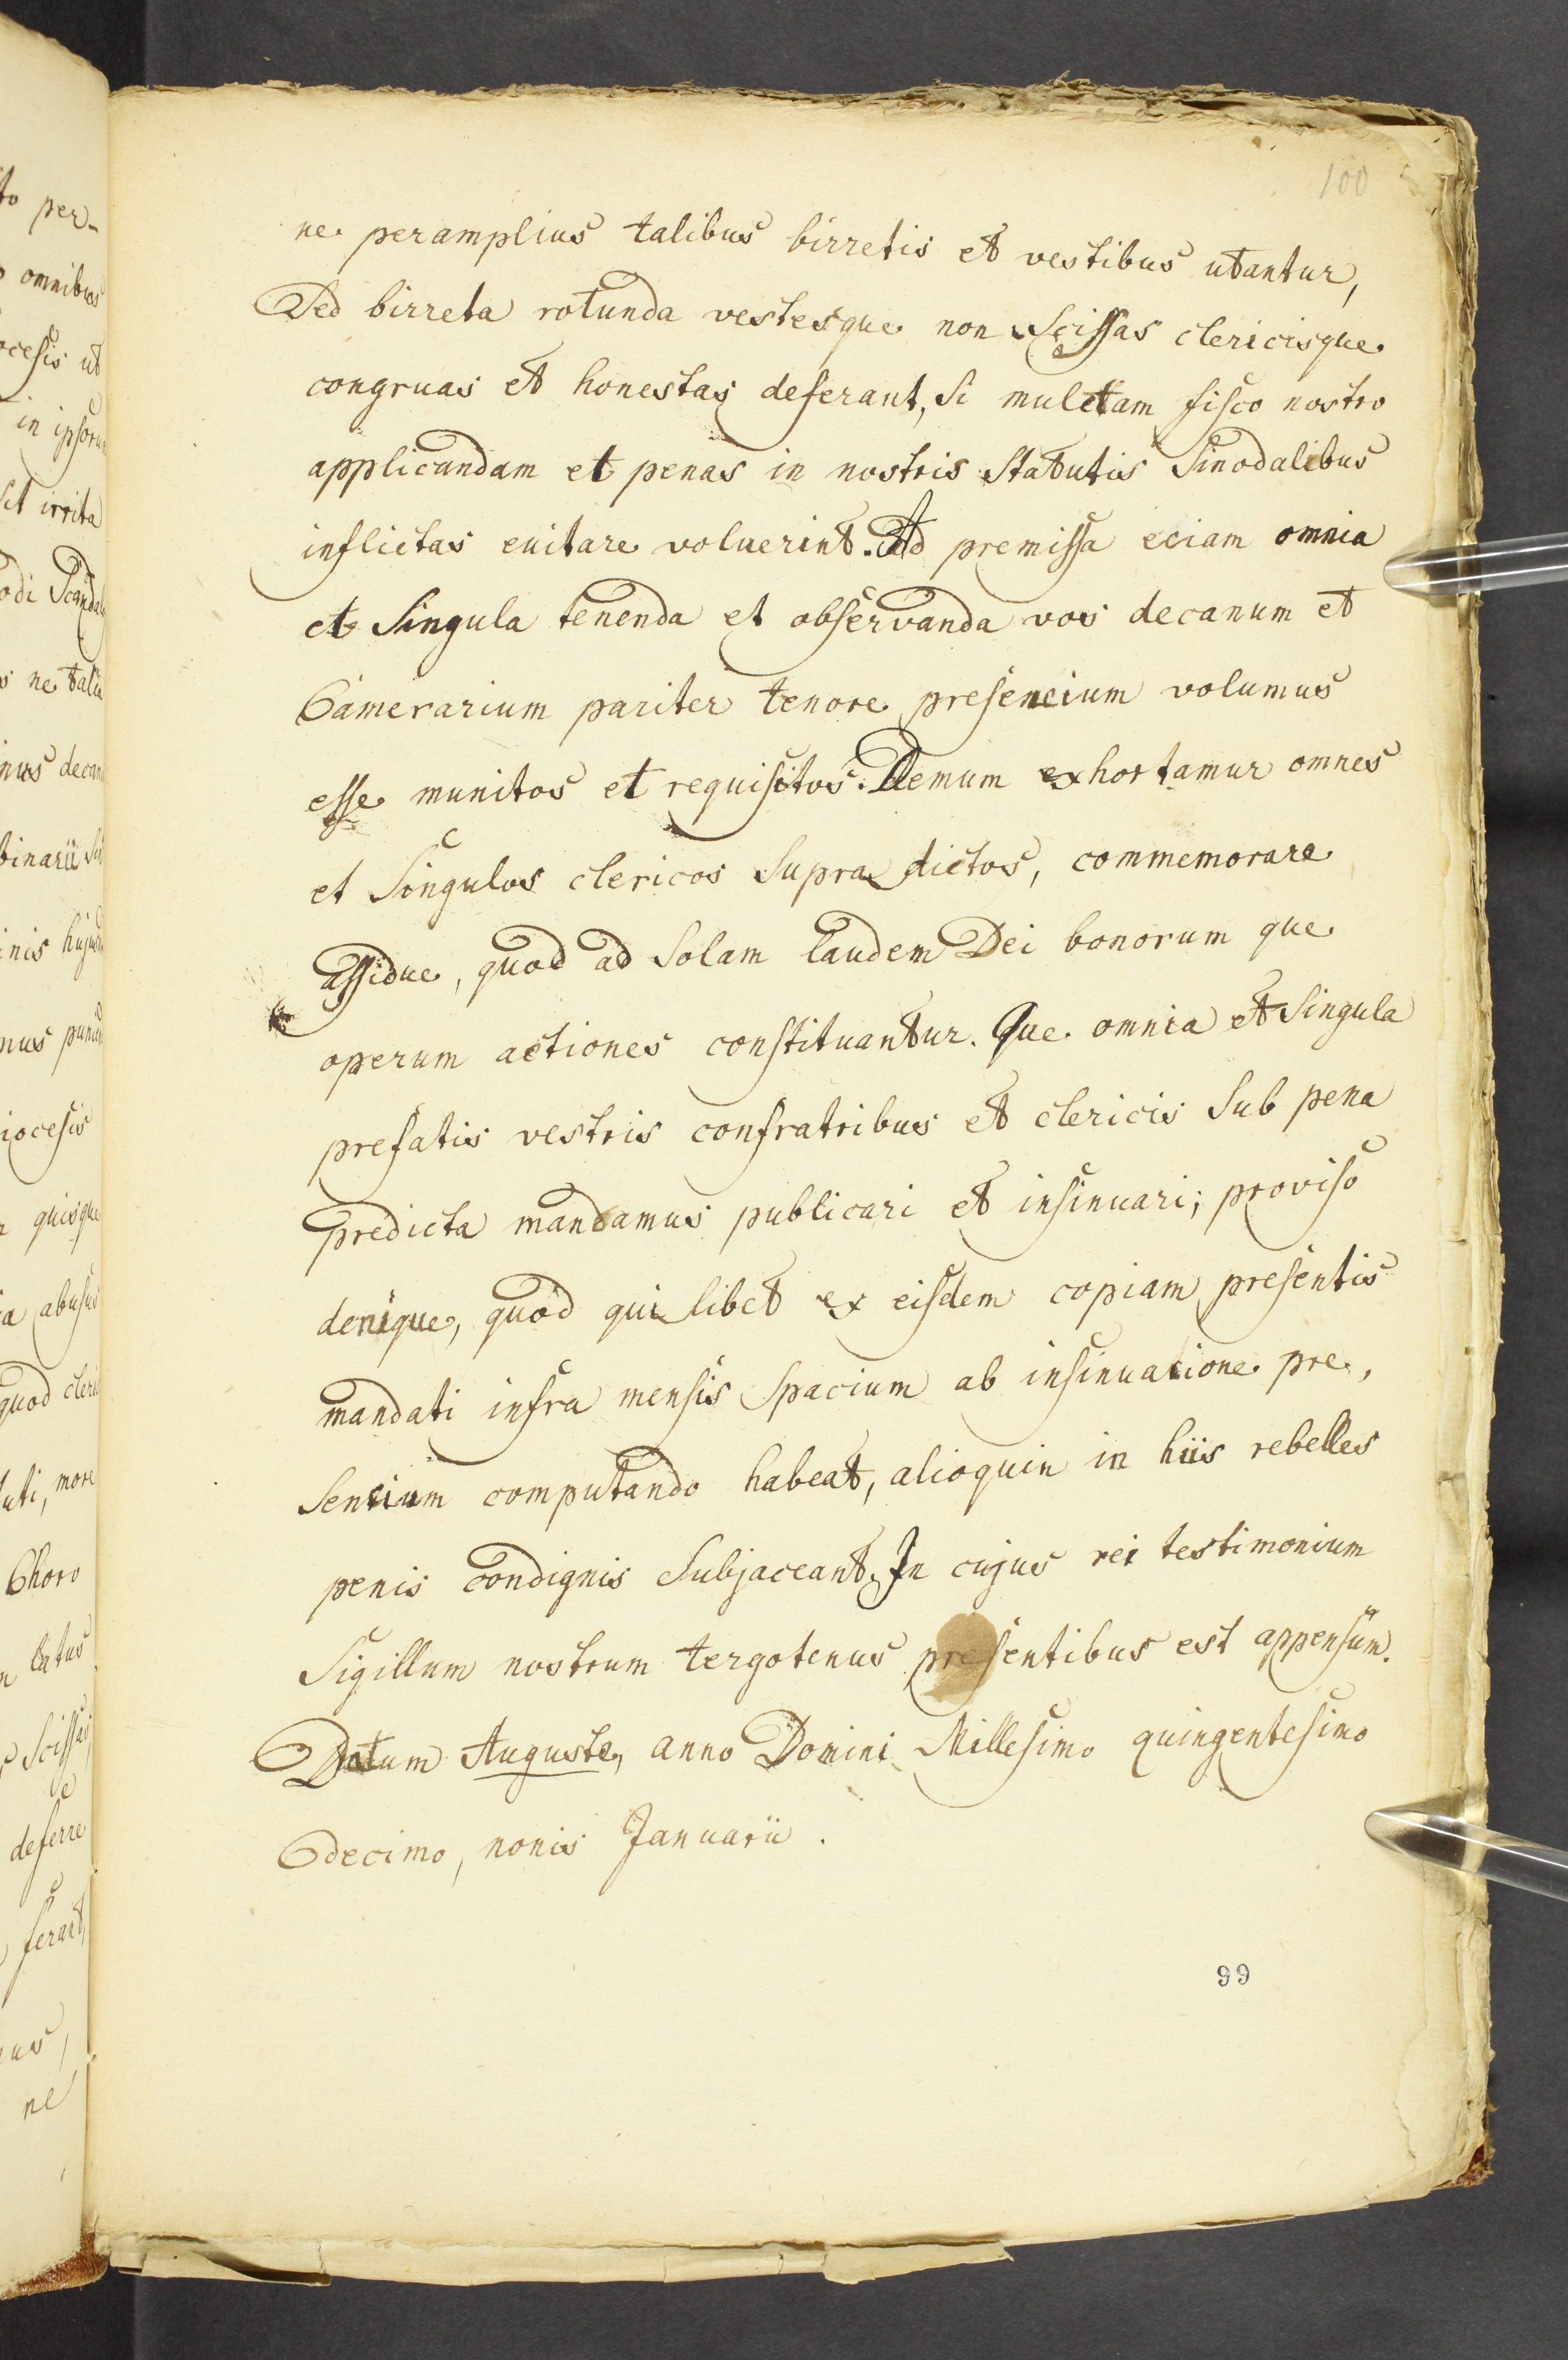 100
ne peramplius talibus birretis et vestibus utantur,
Sed birreta rotunda vestesque non Scissas clericisque
congruas et honestas deferant, Si muletam fisco nostro
applicandam et penas in nostris Statutis Sinodalibus
inflictas euitare voluerint. Ad premissa eciam omnia
et Singula tenenda et observanda vos decanum et
Camerarium pariter tenore presencium volumus
esse munitos et requisitos. Demum exhortamur omnes
et Singulos clericos Supra dictos, commemorare
assidue, quod ad Solam laudem Dei bonorum que
operum actiones constituantur. Que omnia et Singula
prefatis vestris confratribus et clericis Sub pena
predicta mandamus publicari et insinuari; proviso
denique, quod qui libet ex eisdem copiam presentis
mandati infra mensis Spacium ab insinuacione pre,
Sencium computando habeat, alioquin in hiis rebelles
penis condignis Subjaceant. In cujus rei testimonium
Sigillum nostrum tergotenus presentibus est appensum.
Datum Auguste, anno Domini Millesimo quingentesimo
decimo, nonis Januarii.
99
to per-
omnibus
ocesis ut
in ipsorum
sit irrita
odi Scandal
s ne talia
nus decan
binarii
inis hujus
mus
iocesis
quisque
a abusus
quod cleri
uti, more
Choro
latus
Scissas
deferre
ferant,
us,
ne